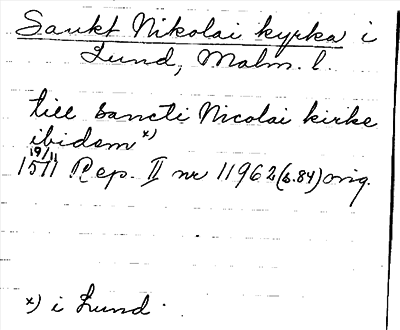 Sankt Nikolai kyrka i
Lund, Malm. l.
till sancti Nicolai kirke
ibidem x)
19/11
1511 Rep. II nr 11962 (s. 84) orig.
x) i Lund.